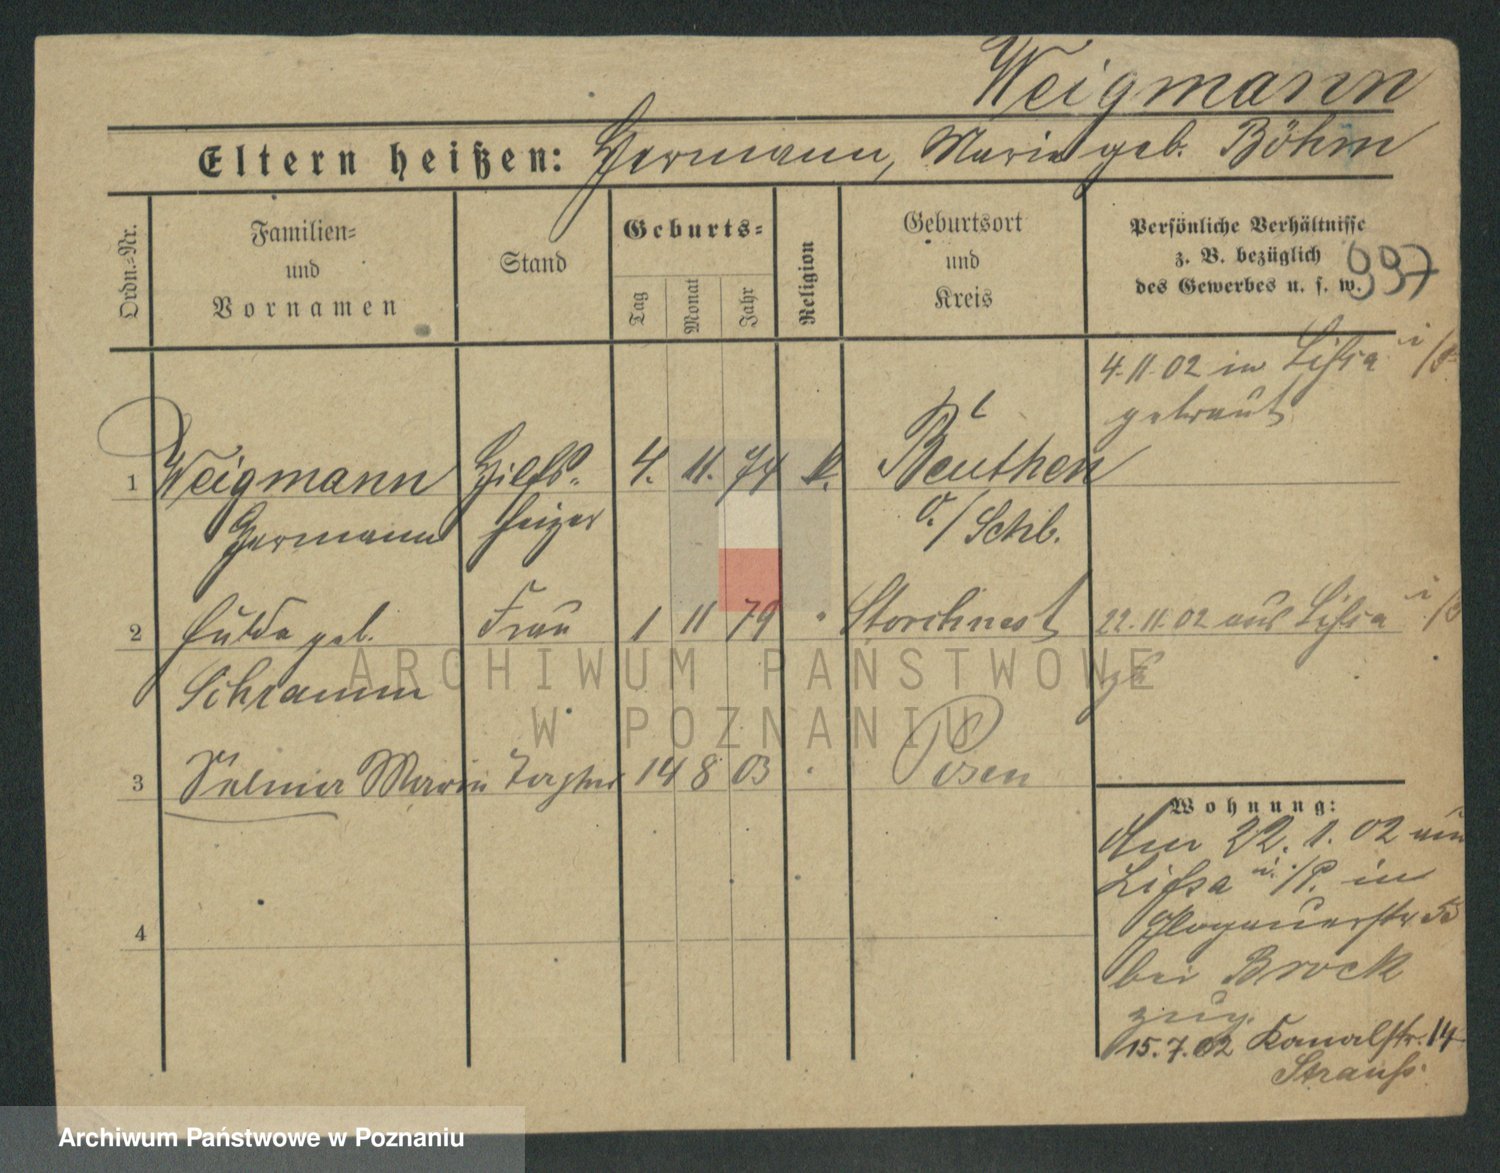 Weigmann
Eltern heißen: Hermann, Marie geb. Böhm
Ordn.-Nr.
Familien-
und
Vornamen
Stand
Geburts-
Tag
Monat
Jahr
Religion
Geburtsort
und
Kreis
Persönliche Verhältnisse
z. B. bezüglich
des Gewerbes u. s. w.
997
4.11.02 in Lissa i/P
getraut
1 Weigmann Hilfs- 4. 11. 74 k. Beuthen
Hermann heizer O./Schl.
2 Hulda geb. Frau 1 11 79 " Storchnest 22.11.02 aus Lissa i/P
Schramm
3 Selma Marie Tochter 14 8 03 " Posen
4
Wohnung:
Am 22.1.02 von
Lissa i./P. in
Glogauerstr
bei Brock
zug.
15.7.02 Kanalstr. 14
Strauß.
ARCHIWUM PAŃSTWOWE
W POZNANIU
Archiwum Państwowe w Poznaniu